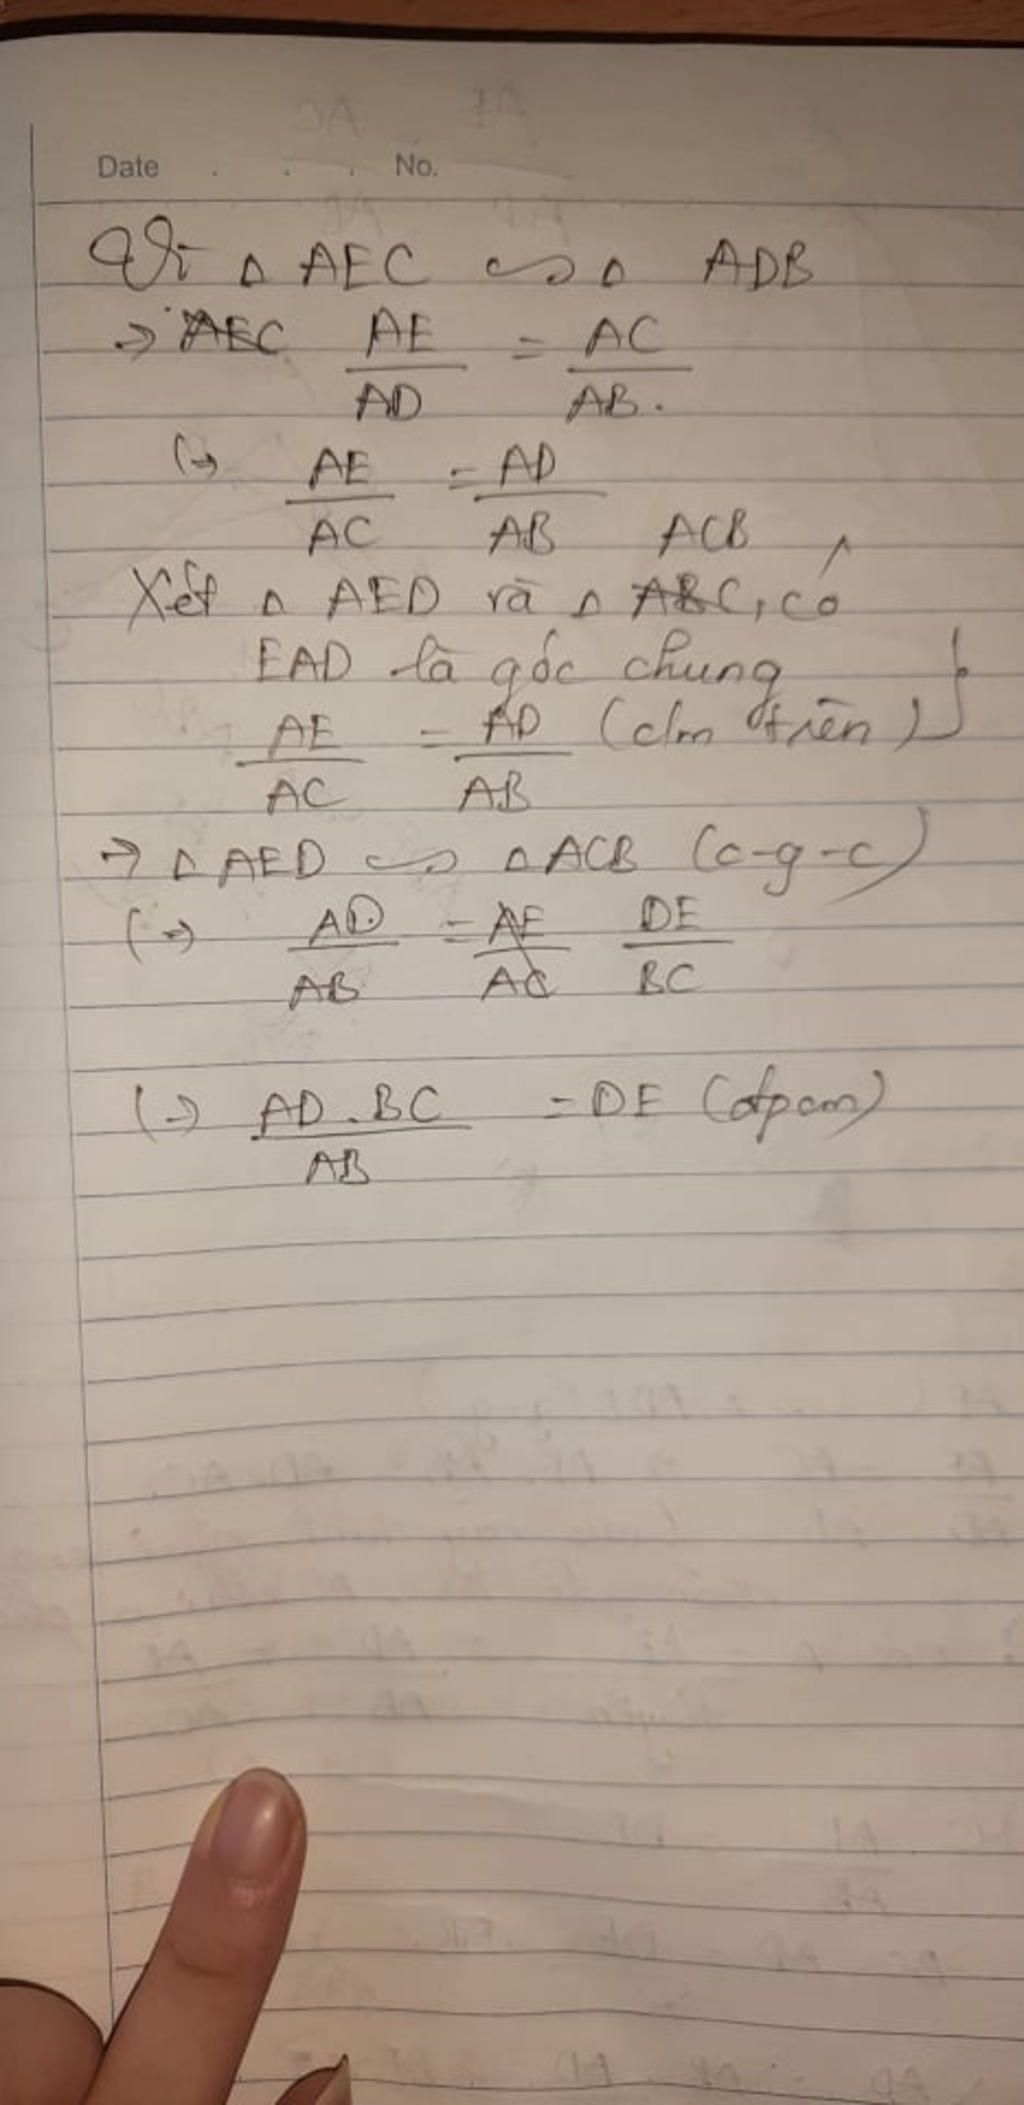 Date . . . No.
Vì Δ AEC ∽ Δ ADB
→ AEC AE/AD = AC/AB.
(→ AE/AC = AD/AB
ACB
Xét Δ AED và Δ ABC, có
EAD là góc chung
AE/AC = AD/AB (cm trên) }
→ Δ AED ∽ Δ ACB (c-g-c)
(→) AD/AB = AE/AC DE/BC
(→) AD.BC/AB = DE (đpcm)